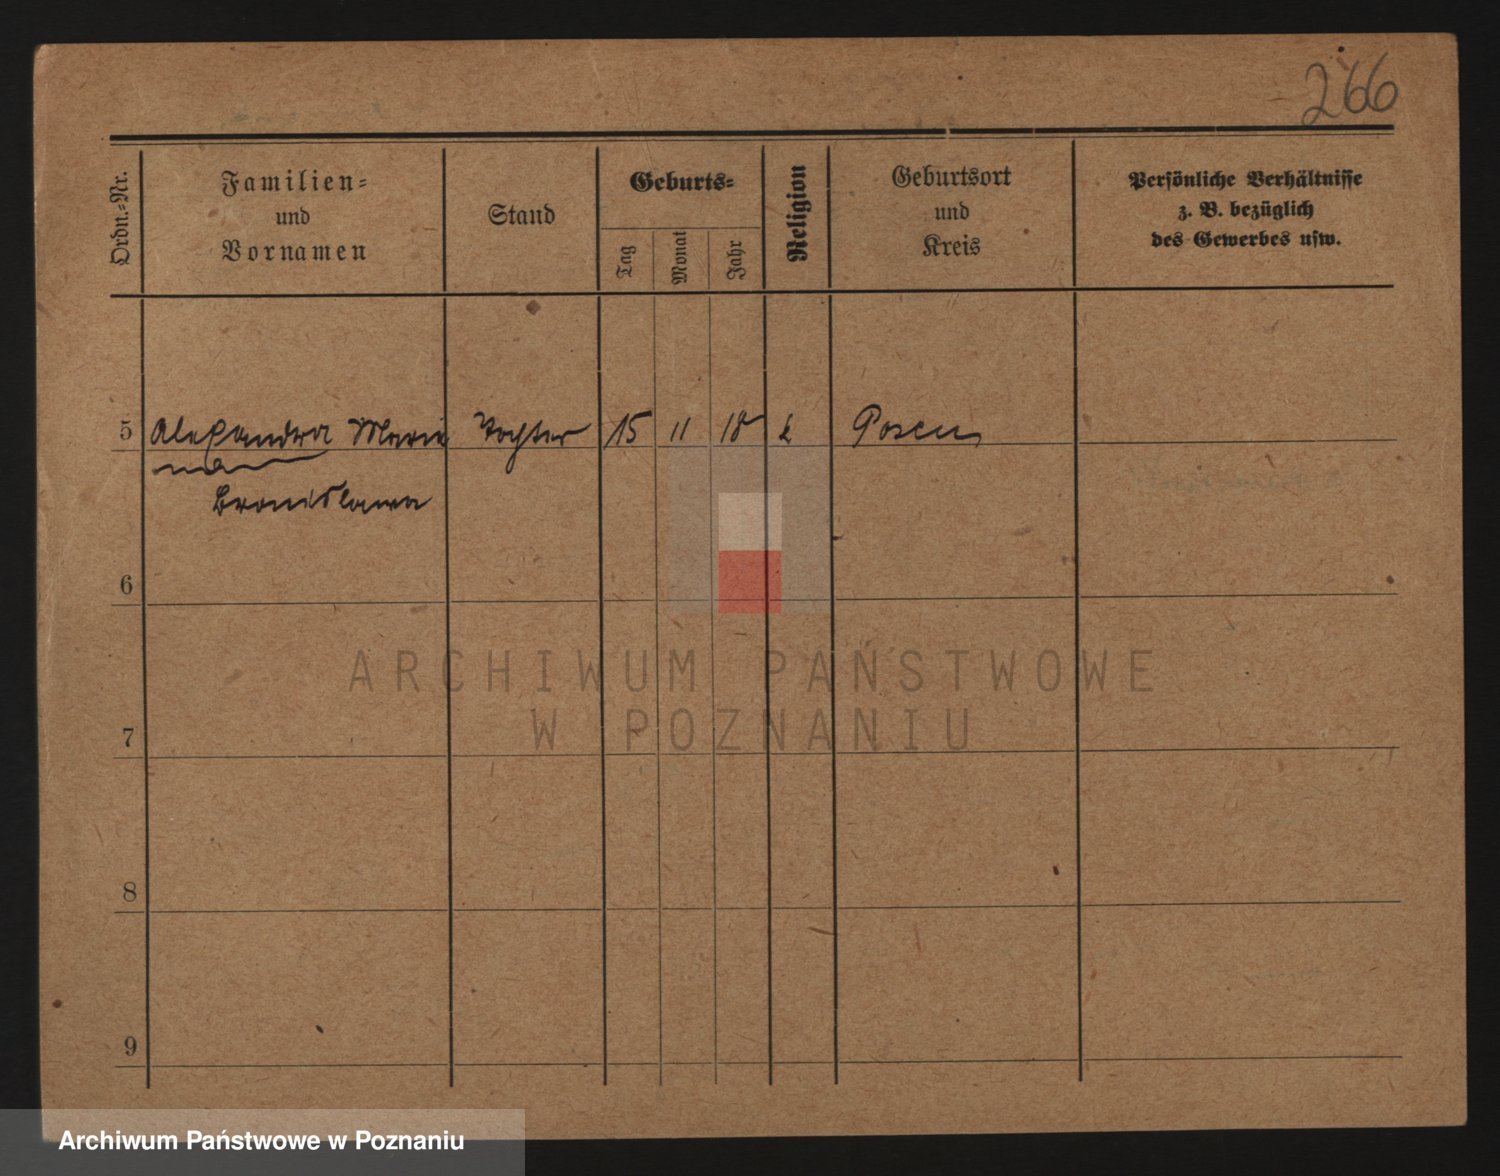 266
Ordn.-Nr.
Familien-
und
Vornamen
Stand
Geburts-
Tag
Monat
Jahr
Religion
Geburtsort
und
Kreis
Persönliche Verhältnisse
z. B. bezüglich
des Gewerbes usw.
5 Alexandra Marie Tochter 15 11 18 k Posen
Bronislawa
6
ARCHIWUM PAŃSTWOWE
W POZNANIU
7
8
9
Archiwum Państwowe w Poznaniu